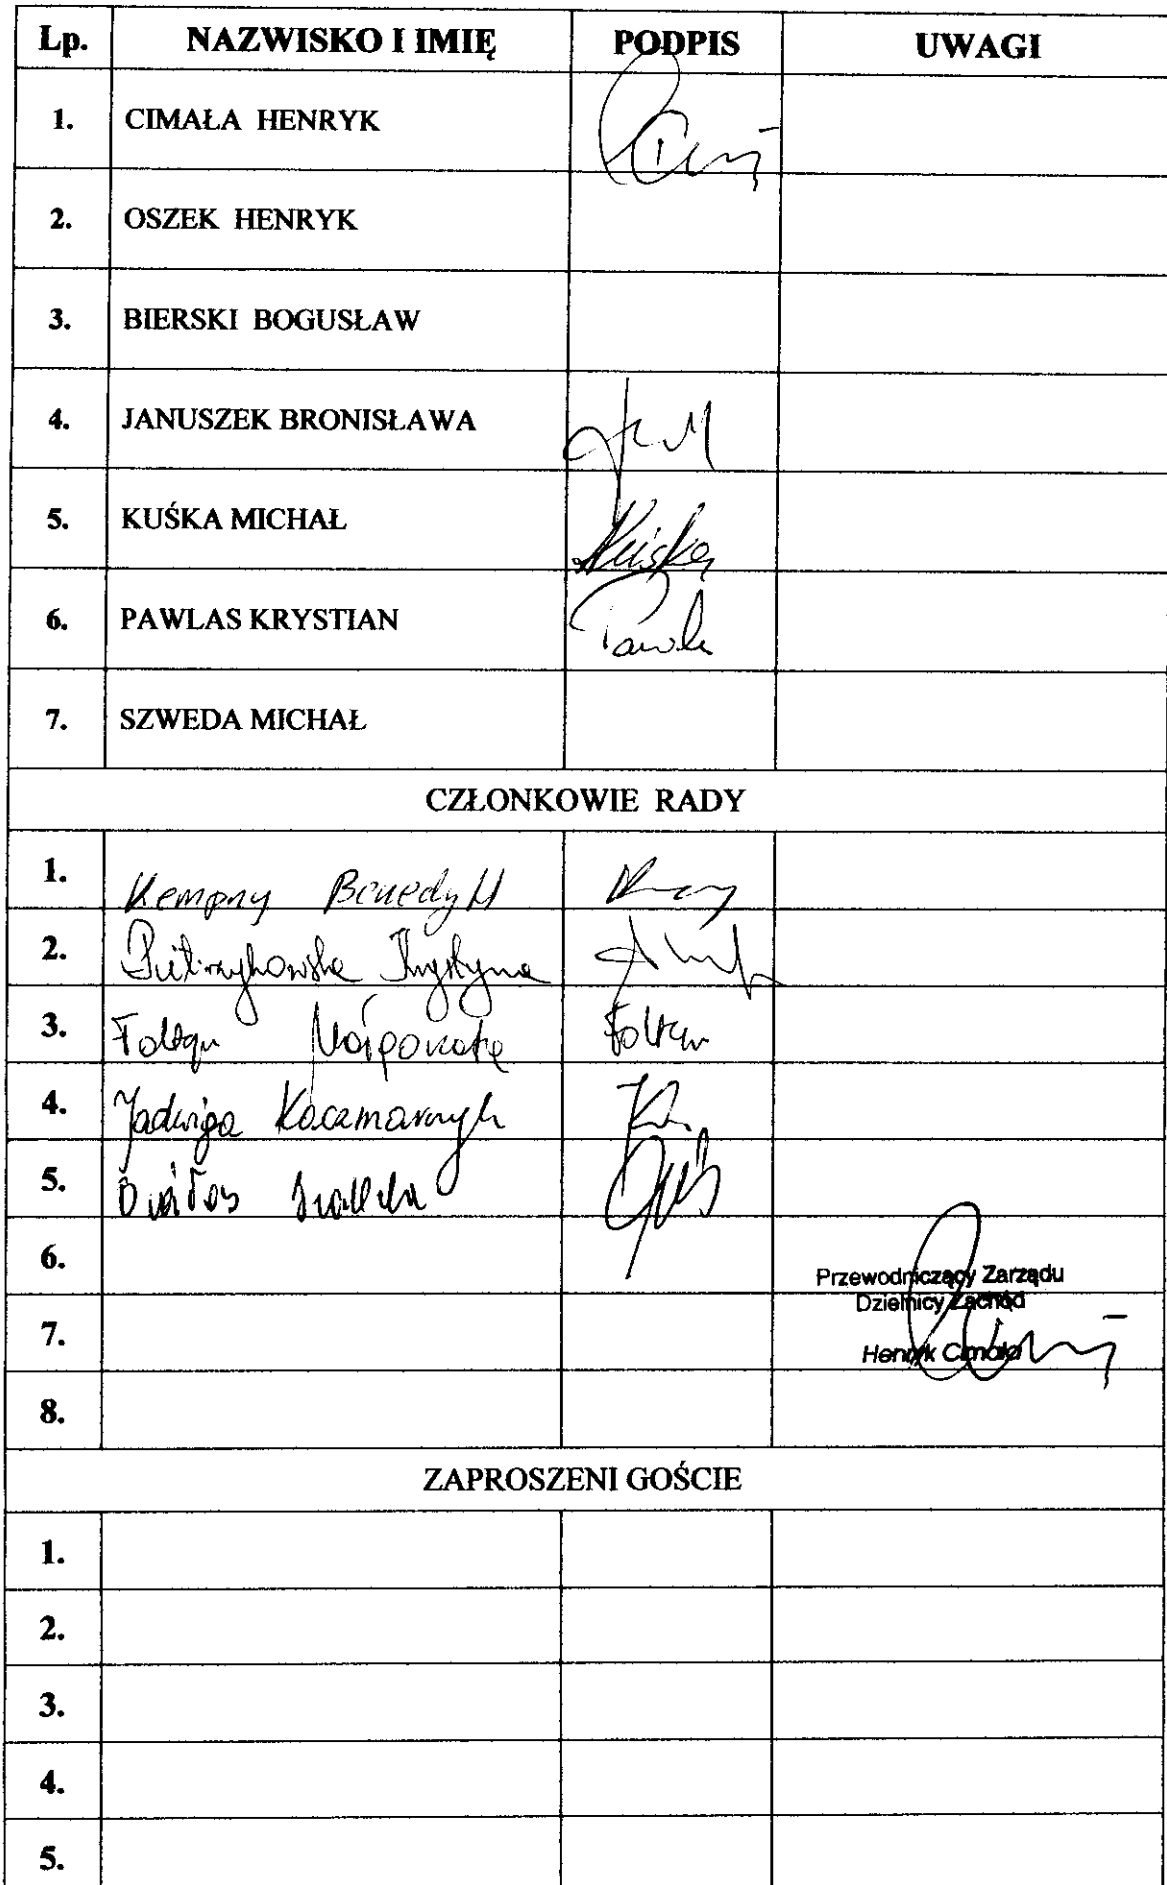 Lp. NAZWISKO I IMIĘ PODPIS UWAGI
1. CIMAŁA HENRYK
2. OSZEK HENRYK
3. BIERSKI BOGUSŁAW
4. JANUSZEK BRONISŁAWA
5. KUŚKA MICHAŁ Kuśka
6. PAWLAS KRYSTIAN
7. SZWEDA MICHAŁ
CZŁONKOWIE RADY
1. Kempny Benedykt
2. Krystyna
3. Foltyn Małgorzata Foltyn
4. Jadwiga Kaczmarczyk
5.
6.
Przewodniczący Zarządu
Dzielnicy Zachód
7.
Henryk Cimała
8.
ZAPROSZENI GOŚCIE
1.
2.
3.
4.
5.